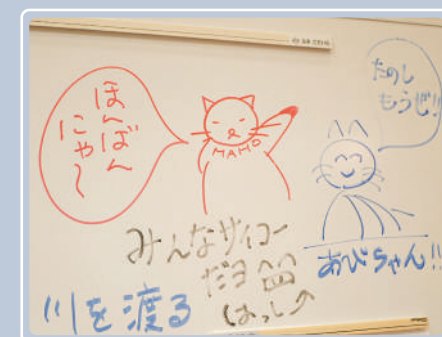 ほんばん
にゃ〜
MAHO
たのし
もうぜ!!
みんなサイコー
だヨ
はっし
あびちゃん!!
川を渡る